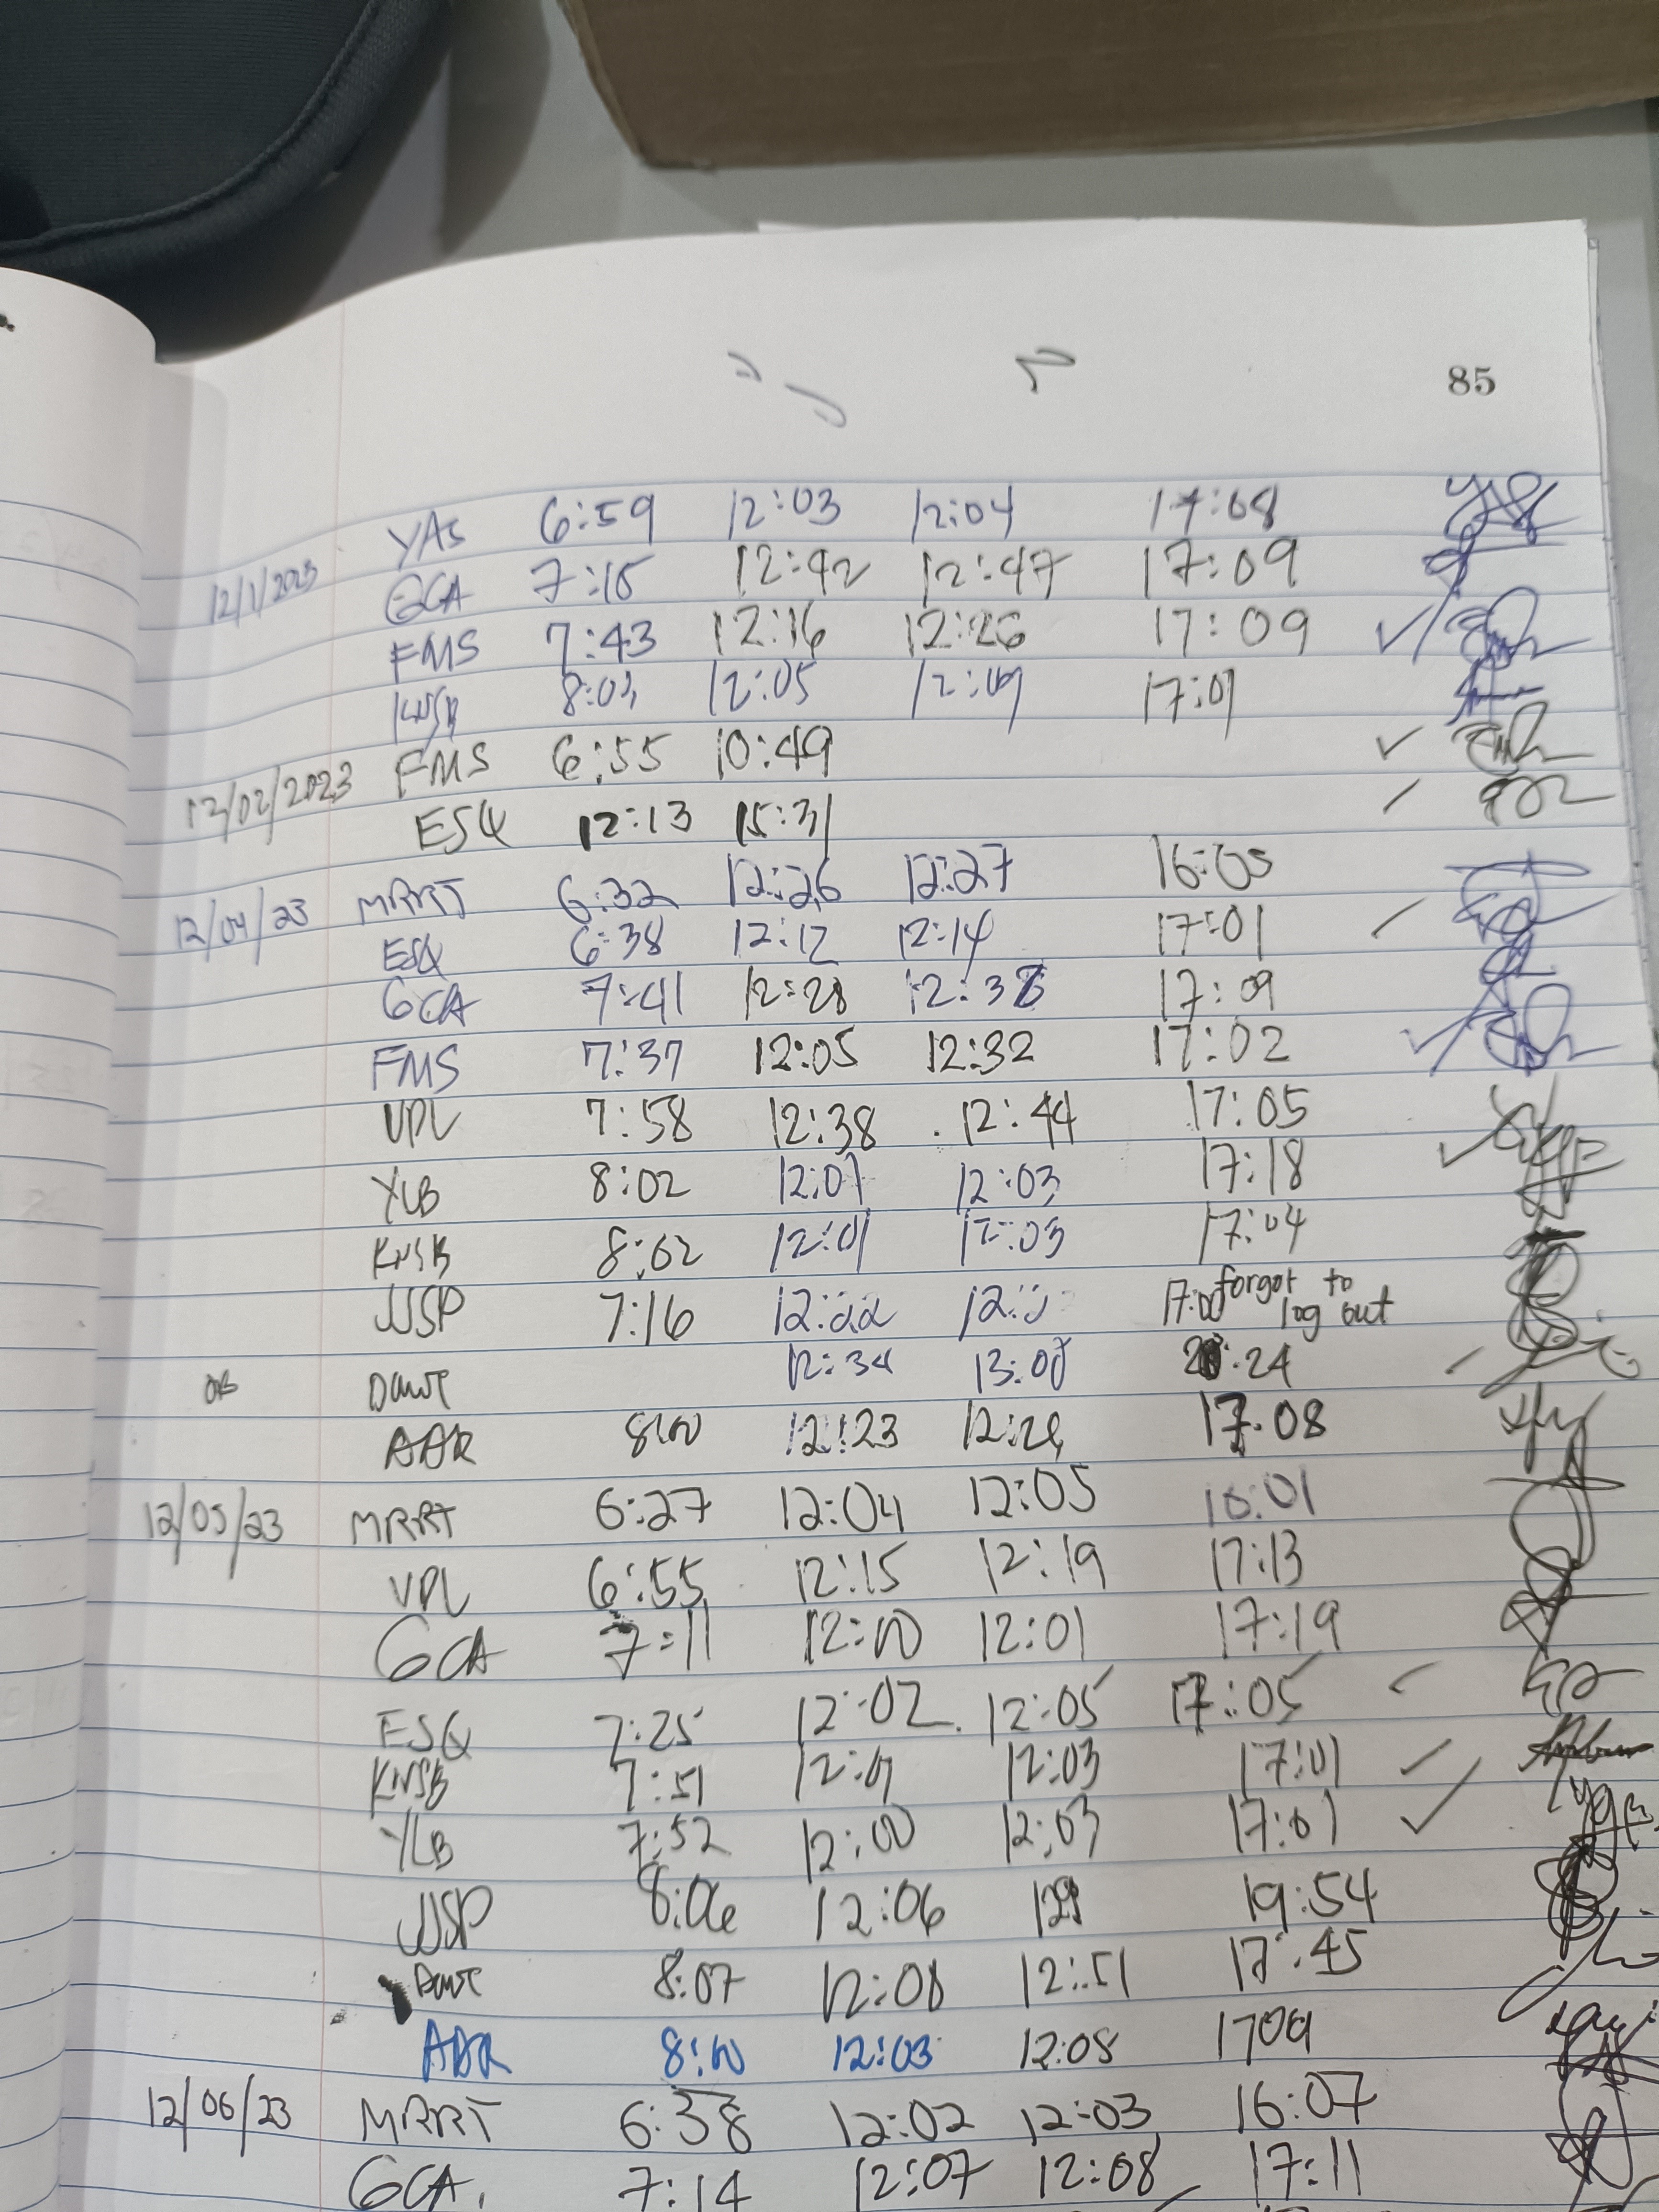 85
YAS 6:59 12:03 12:04 17:08
12/1/2023 GCA 7:15 12:42 12:47 17:09
FMS 7:43 12:16 12:26 17:09
KNSB 8:03 12:05 12:09 17:01
12/02/2023 FMS 6:55 10:49
ESQ 12:13 15:31
12/04/23 MRRT 6:32 12:26 12:27 16:05
ESQ 6:38 12:12 12:14 17:01
GCA 7:41 12:28 17:09
FMS 7:37 12:05 12:32 17:02
VPL 7:58 12:38 12:44 17:05
YLB 8:02 12:01 12:03 17:18
KNSB 8:02 12:01 12:03 17:04
JJSP 7:16 12:22 17:00 forgot to
log out
OB 12:34 13:00
ADR 8:00 12:23 17:08
12/05/23 MRRT 6:27 12:04 12:05 16:01
VPL 6:55 12:15 12:19 17:13
GCA 7:11 12:00 12:01 17:19
ESQ 7:25 12:02 12:05 17:05
KNSB 7:51 12:01 12:03 17:01
YLB 7:52 12:00 12:03 17:01
JJSP 8:06 12:06 19:54
8:07 12:08 12:51 17:45
ADR 8:00 12:03 12:08 1709
12/06/23 MRRT 6:38 12:02 12:03 16:07
GCA. 7:14 12:07 12:08 17:11